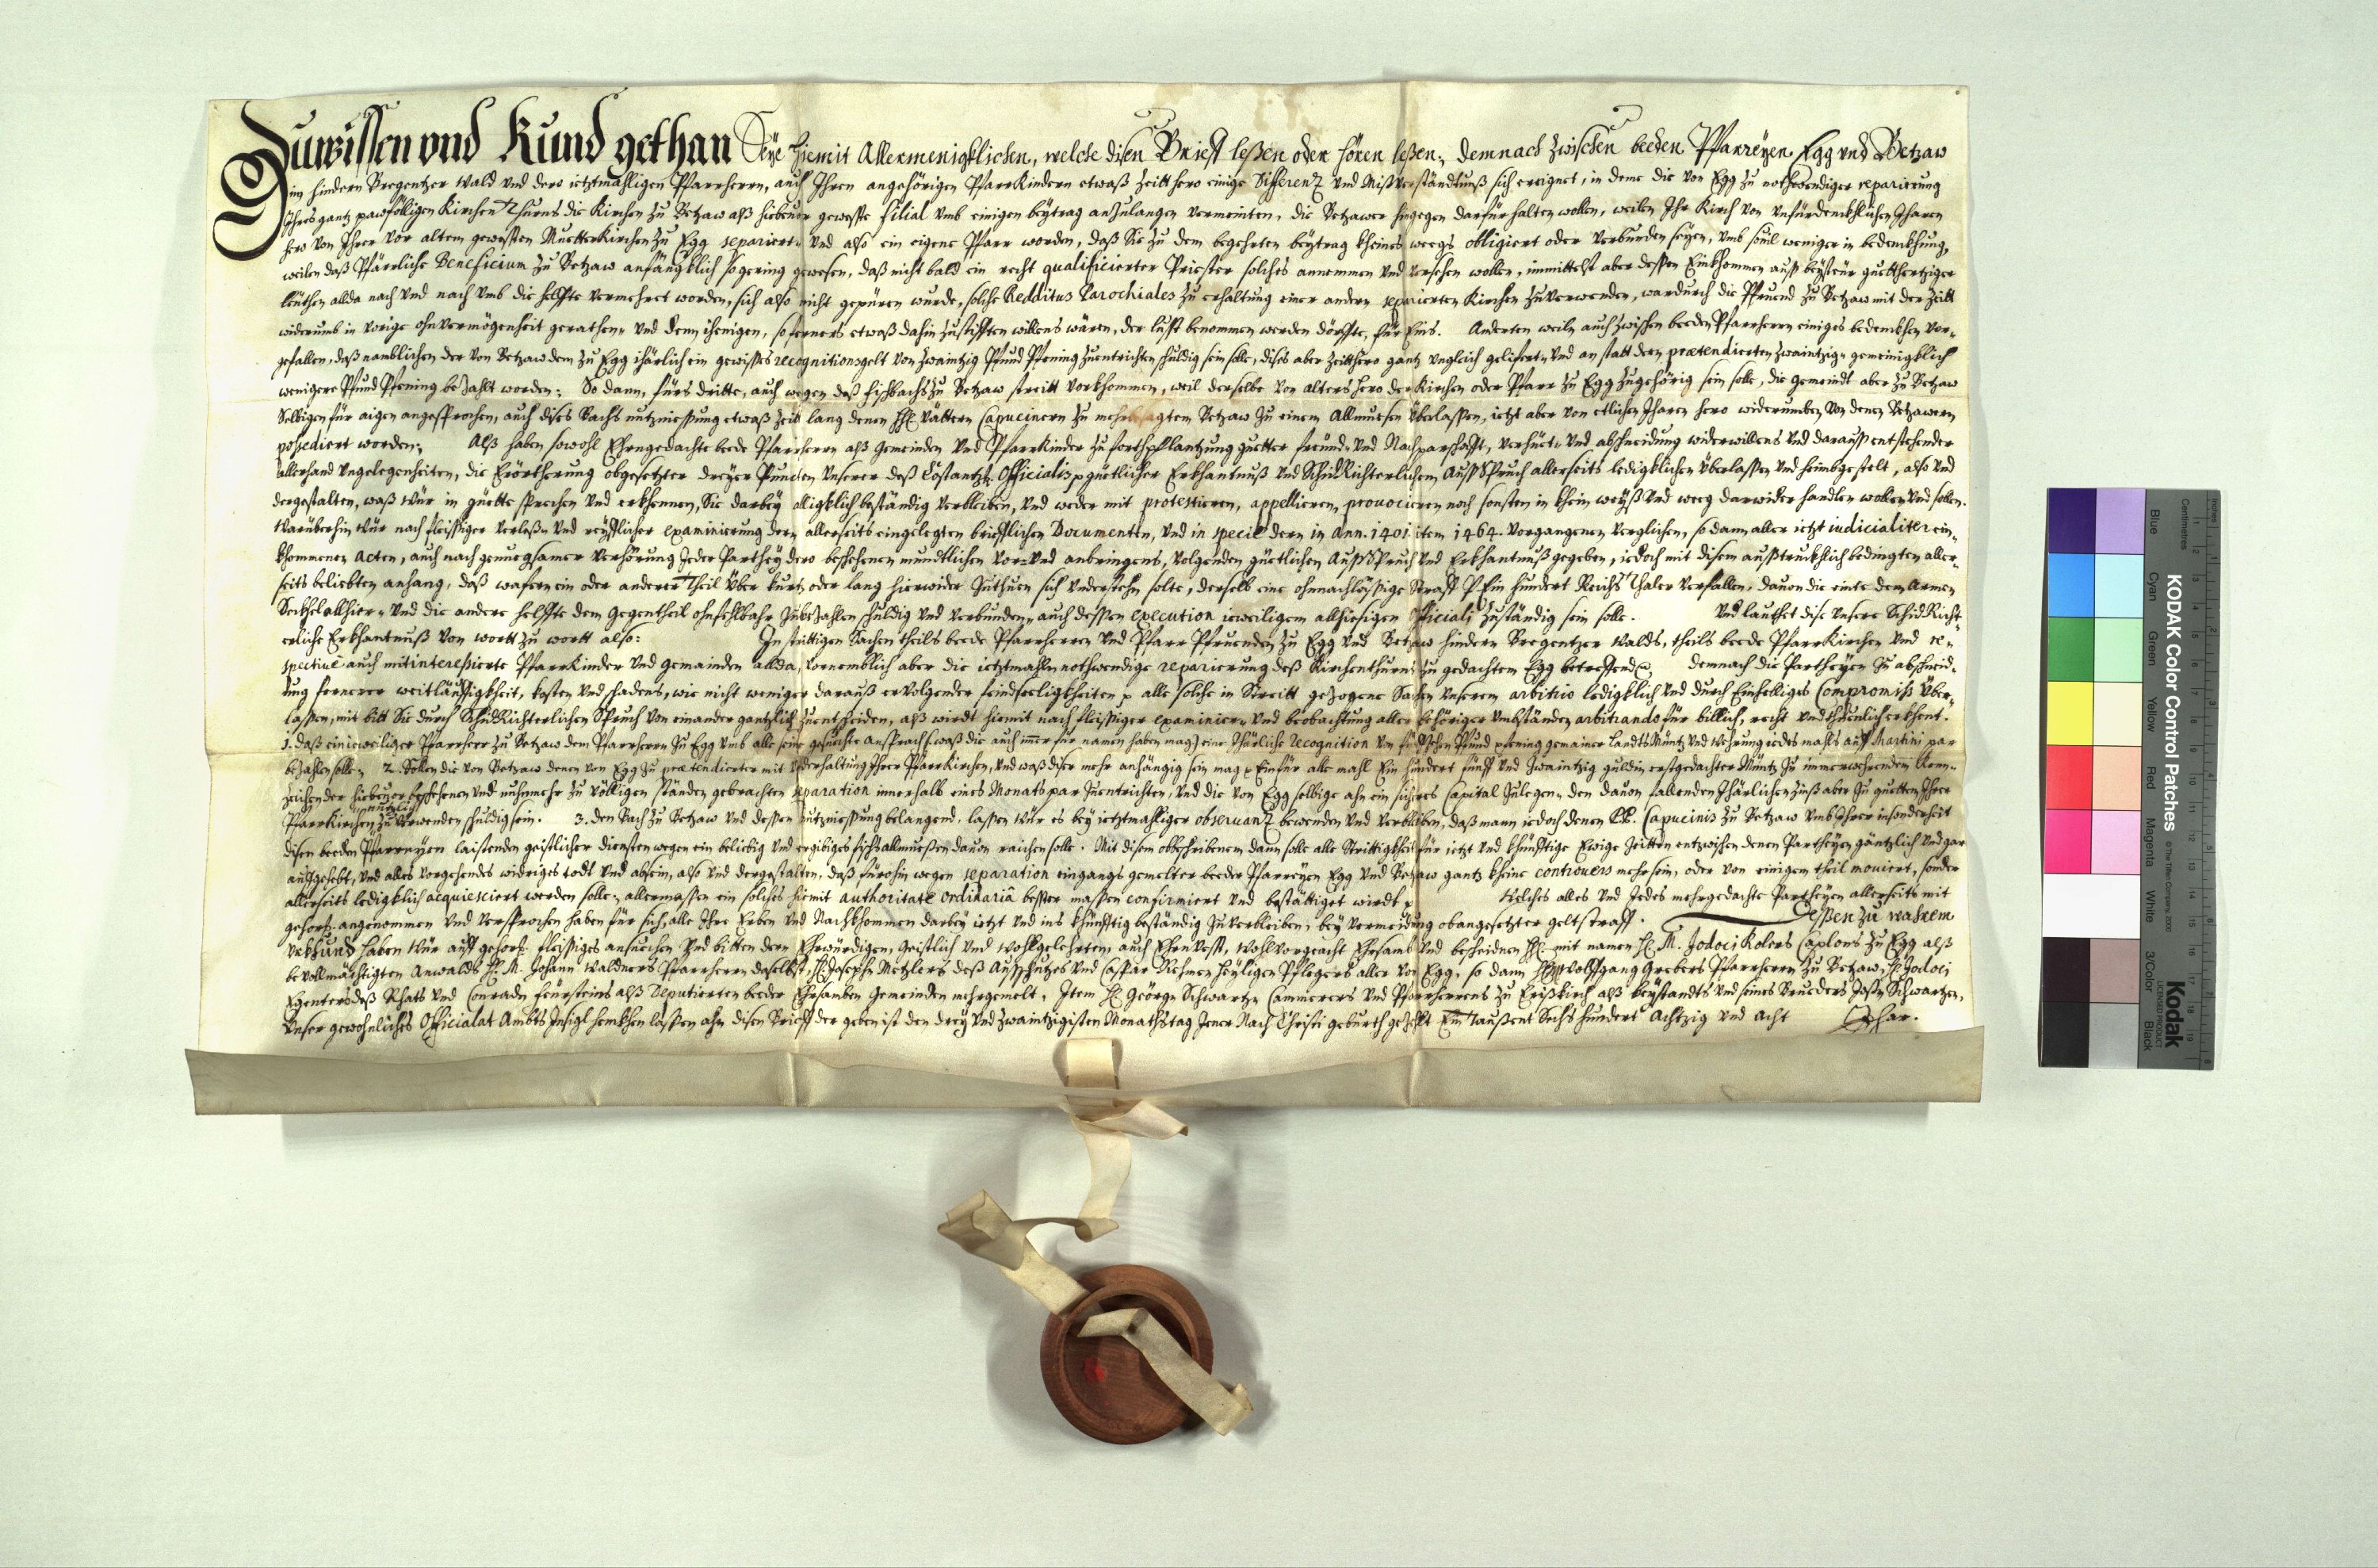 Zuwissen vnd Kund gethan Seye hiemit Allermenigklichen, welche disen Brieff leßen oder hören leßen, demnach zwischen beeden Pfarreyen Egg vnd Betzaw
im hindern Bregentzer Wald vnd dero ietztmahligen Pfarrherrn, auch Ihren angehörigen PfarrKindern etwaß Zeitt hero einige Differentz vnd Mißverständtnuß sich ereignet, in deme die von Egg zu nothwendiger reparierung
Ihres gantz pawfölligen Kirchen Thurns die Kirchen zu Betzaw alß hiebeuor geweste filial vmb einigen beytrag anzulangen vermeinten, die Betzawer hingegen darfür halten wollen, weilen Ihr Kirch von vnfürdencklichen Jharen
hero von Ihrer vor altem gewesten Muetter Kirchen zu Egg separiert vnd also ein eigene Pfarr worden, daß Sie zu dem begehrten beytrag kheines weegs obligiert oder verbunden seyen, vmb souil weniger in bedenckhung,
weilen daß Pfärrliche Beneficium zu Betzaw anfängklich so gering gewesen, daß nicht bald ein recht qualificierter Priester solches annemmen vnd versehen wollen, immittelst aber dessen Einkhommen auß beysteür guetthertziger
leüthen allda nach vnd nach vmb die helffte vermehrt worden, sich also nicht gepüren wurde, solche Redditus Parochiales zu erhaltung einer andern separierten Kirchen zuverwenden, wardurch die Pfruend zu Betzaw mit der Zeitt
widerumb in vorige ohnvermögenheit gerathen, vnd denn ihenigen, so ferners etwaß dahin zustifften willens wären, der lust benommen werden dörffte, für Eins. Anderten weiln auch zwischen beeden Pfarrherrn einiges bedenckhen vor-
gefallen, daß namblichen der von Betzaw dem zu Egg ihärlich ein gewisses recognitionsgelt von zwaintzig Pfund Pfening zuentrichten schuldig sein solle, dises aber Zeitthero gantz vngleich gelifert, vnd an statt dern prætendierten zwaintzig, gemeinigklich
wenigere Pfund Pfening bezahlt worden; So dann, fürs dritte, auch wegen deß Fischbachs zu Betzaw streitt vorkhommen, weil derselbe von alters hero der Kirchen oder Pfarr zu Egg zugehörig sein solle, die gemeindt aber zu Betzaw
Selbigen für aigen angesprochen, auch dises Bachs nutzniessung etwaß Zeitt lang denen HH. Vättern Capucinern zu mehrbesagtem Betzaw zu einem Allmuesen überlassen, ietzt aber von etlichen Jharen hero widerumben von denen Betzawern
possediert worden; Alß haben sowohl Ehrngedachte beede Pfarrherrn alß Gemeinden vnd PfarrKinder zu forthpflantzung guetter freünd- vnd Nachparschafft, verhüet- vnd abschneidung widerwillens vnd darauß entstehender
allerhand vngelegenheiten, die Erörtherung obgesetzter dreyer Puncten vnserer deß Costantz. Officialis güetlicher Erkhantnuß vnd SchidRichterlichem Außspruch allerseits ledigklichen überlassen vnd heimbgestelt, also vnd
dergestalten, waß wür in güette sprechen vnd erkhennen, Sie darbey alligklich beständig verbleiben, vnd weder mit protestieren, appellieren, prouocieren noch sonsten in khein weyß vnd weeg darwider handlen wollen vnd sollen.
Warüberhin wür nach fleissiger verleß- vnd reyfflicher examinierung dern allerseits eingelegten brieflichen Documenten, vnd in specie dern in Ann. 1401 item 1464. vorgangenen verglichen, so dann aller ietzt iudicialiter ein-
khommener Acten, auch nach genuegsamer verhörung Jeder Parthey dero beschehenen mundtlichen vor- vnd anbringens, volgenden güettlichen Außspruch vnd Erkhantnuß gegeben, iedoch mit disem außtrucklich bedingten aller-
seits beliebten anhang, daß wafern ein oder anderer Theil über kurtz oder lang hierwider zuthuen sich vnderstehn solte, derselb eine ohnnachläßige Straff P Ein hundert Reichs Thaler verfallen, dauon die einte dem Armen
Seckhel allhier, vnd die andere helffte dem Gegentheil ohnfehlbahr zubezahlen schuldig vnd verbunden, auch dessen execution ieweiligem allhiesigen Officiali zuständig sein solle. Vnd lauthet dise vnsere SchidRicht-
erliche Erkhantnuß von wortt zu wortt also: In strittigen Sachen theils beede Pfarrherren vnd Pfarr Pfruenden zu Egg vnd Betzaw hindern Bregentzer Walds, theils beede PfarrKirchen vnd re-
spectiuè auch mitinteressierte PfarrKinder vnd gemainden allda, vornemblich aber die ietztmahlen nothwendige reparierung deß Kirchenthurns zu gedachtem Egg betreffend. demnach die Partheyen zu abschneid-
ung fernerer weitläuffigkheit, kosten vnd schadens, wie nicht weniger darauß ervolgender feindseeligkheiten alle solche in Streitt gezogene Sachen vnserem arbitrio ledigklich vnd durch Einhelliges Compromiß über-
lassen, mit bitt Sie durch SchidRichterlichen Spruch von einander gantzlich zuentscheiden, alß wirdt hiemit nach fleissiger examinier- vnd beobachtung aller behöriger vmbständen arbitrando für billich, recht vnd thuenlich erkhent.
1. daß ein ieweiliger Pfarrherr zu Betzaw dem Pfarrherrn zu Egg vmb alle seine gesuechte ansprach (waß die auch imer für namen haben mag) eine Jhärliche recognition von Pfund pfening gemainer Landts Müntz vnd wehrung iedes mahls auff Martini par
bezahlen solle, 2. Sollen die von Betzaw denen von Egg zu prætendierter mit vnderhaltung Ihrer PfarrKirchen, vnd waß diser mehr anhängig sein mag Einfür alle mahl Ein hundert fünff vnd zwaintzig guldin erstgedachter Müntz zu immerwehrenden Kenn-
zeichen der hiebeuor beschehenen vnd nuhnmehr zu völligen ständen gebrachten separation innerhalb eines Monats par zuentrichten, vnd die von Egg selbige ahn ein sicheres Capital zulegen, den dauon fallenden Jhärlichen zinß aber zu guetten Ihrer
PfarrKirchen nutzlich zu verwenden schuldig sein. 3. den Bach zu Betzaw vnd dessen nutzniessung belangend, lassen wür es bey ietztmahliger obseruantz bewenden vnd verbleiben, daß mann iedoch denen Capucinis zu Betzaw vmb Ihrer insonderheit
disen beeden Pfarreyen laistenden geistlicher diensten wegen ein beliebig vnd ergibiges fischallmuesen dauon raichen solle. Mit disem obbeschribenem dann solle alle Strittigkheit für ietzt vnd khünfftige Ewige Zeitten entzwischen denen Partheyen gäntzlich vnd gar
auffgehebt, vnd alles vorgehendes widriges todt vnd absein, also vnd dergestalten, daß fürohin wegen separation eingangs gemelter beeder Pfarreyen Egg vnd Betzaw gantz kheine controuers mehr sein, oder von einigem theil mouiert, sonder
allerseits ledigklich acquiesciert werden solle, allermassen ein solches hiemit authoritate ordinaria bester massen confirmiert vnd bestättiget wirdt Welches alles vnd Jedes mehrgedachte Partheyen allerseits mit
gehors. angenommen vnd versprochen haben für sich, alle Ihre Erben vnd Nachkhommen darbey ietzt vnd ins khünfftig beständig zuverbleiben, bey vermeidung obangesetzter geltstraff. dessen zu wahrem
Vrkhund haben wür auff gehors. fleissiges ansuechen vnd bitten dern Ehrwürdigen, Geistlich vnd Wohlgelehrten, auch EhrenVest, Wohlvorgeacht Ehrsamb vnd bescheidnen HH. mit namen H. M. Jodoci Kolers Caplons zu Egg alß
bevollmächtigten Anwalds H. M. Johann Waldners Pfarrherrn daselbst, H. Joseph Metzlers deß Ausschutzes vnd Caspar heyligen Pflegers aller von Egg, so dann Wolffgang Grebers Pfarrherrn zu Betzaw, H. Jodoci
Egenters deß Rhats vnd Conradn feürsteins alß Deputierten beeder Ehrsamben Gemeinden mehrgemelt, Item H. Geörgn Schwartzn Cammerers vnd Pfarrherrens zu Eriskirch alß beystandts vnd seines Brueders Josn Schwartzen,
Vnser gewohnliches Officialat Ambts Insigl henckhen lassen ahn disen Brieff der geben ist den drey vnd zwaintzigisten Monathstag Jener Nach Christi geburth gezehlt Ein Taußent Sechs hundert Achtzig vnd Acht Jhar.
KODAK Color Control Patches
©The Tiffen Company, 2000
Kodak
LICENSED PRODUCT
Inches
Centimetres
Blue
Cyan
Green
Yellow
Red
Magenta
White
3/Color
Black